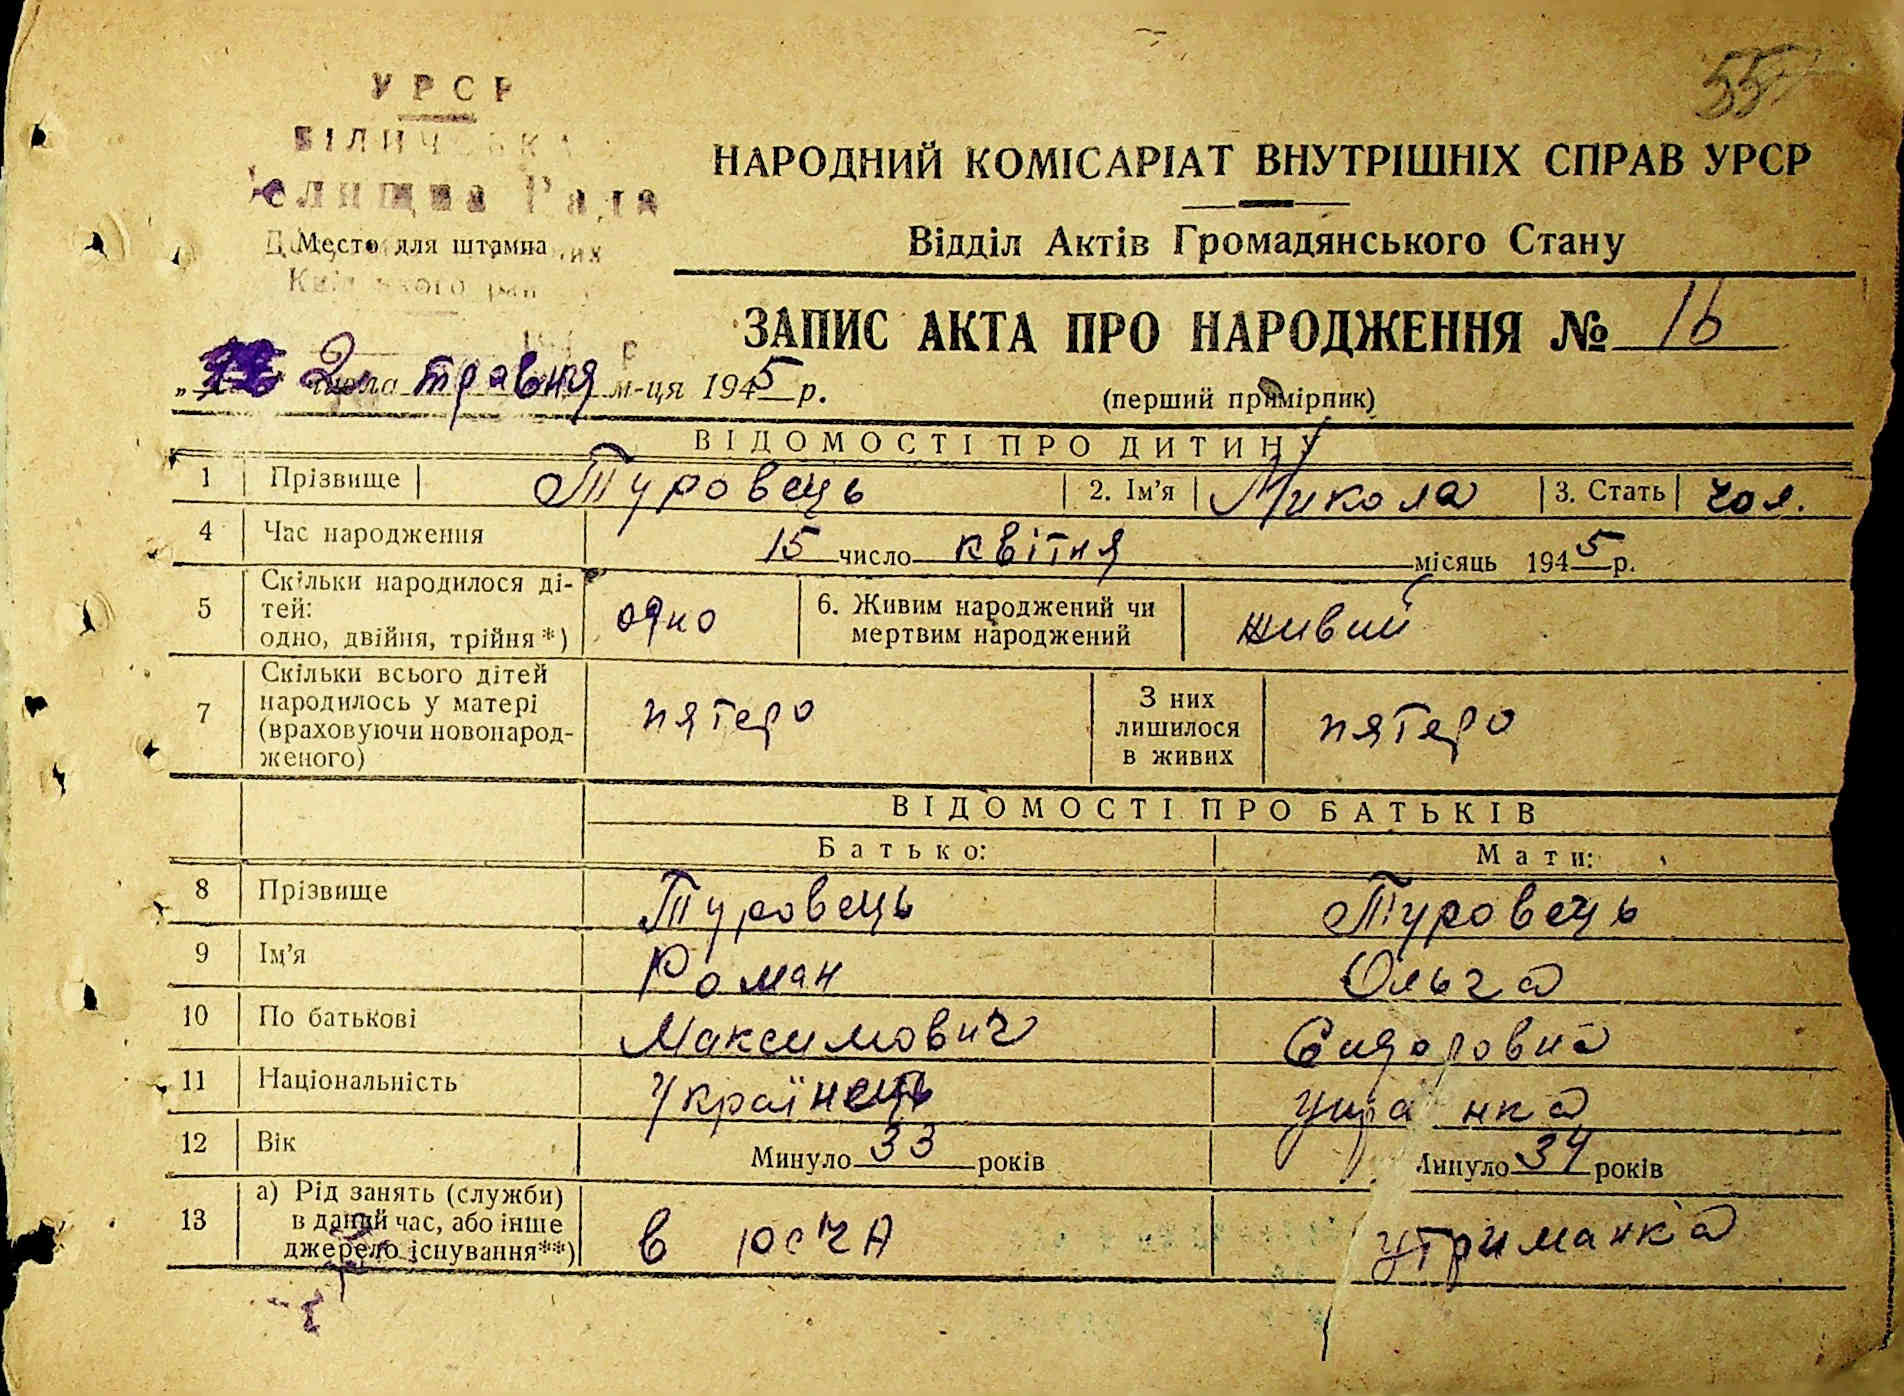 55
УРСР
БІЛИЧСЬКА
Селищна Рада
Место для штампа
НАРОДНИЙ КОМІСАРІАТ ВНУТРІШНІХ СПРАВ УРСР
Відділ Актів Громадянського Стану
ЗАПИС АКТА ПРО НАРОДЖЕННЯ № 16
„ 2 числа травня м-ця 1945 р.
(перший примірник)
ВІДОМОСТІ ПРО ДИТИНУ
1 Прізвище Туровець 2. Ім'я Микола 3. Стать чол.
4 Час народження 15 число квітня місяць 1945 р.
5 Скільки народилося ді-
тей:
одно, двійня, трійня*) одно 6. Живим народжений чи
мертвим народжений живий
7 Скільки всього дітей
народилось у матері
(враховуючи новонарод-
женого) пятеро З них
лишилося
в живих пятеро
ВІДОМОСТІ ПРО БАТЬКІВ
Батько: Мати:
8 Прізвище Туровець Туровець
9 Ім'я Роман Ольга
10 По батькові Максимович Сидоровна
11 Національність Українець
12 Вік Минуло 33 років Минуло 34 років
13 а) Рід занять (служби)
в даний час, або інше
джерело існування**) в РСЧА утриманка